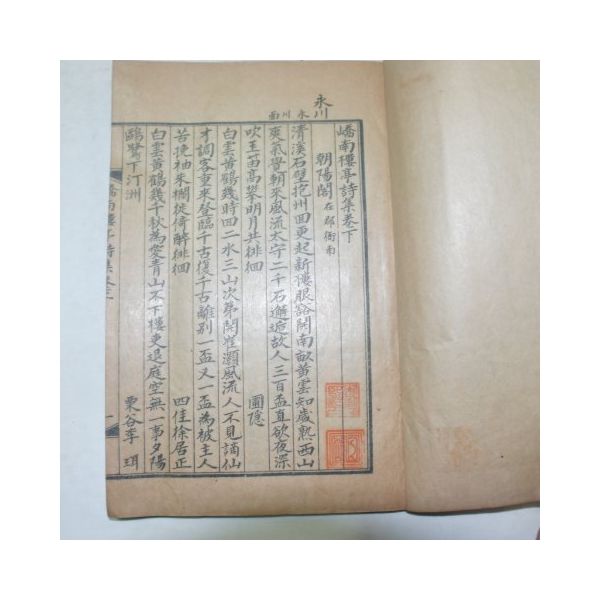 嶠南樓亭詩集卷下
永川
永川面
朝陽閣 在郡衙南
淸溪石壁抱州回更起新樓眼豁開南畝黃雲知歲熟西山
爽氣覺朝來風流太守二千石邂逅故人三百盃直欲夜深
吹玉笛高攀明月共徘徊 圃隐
白雲黃鶴幾時回二水三山次第開崔灝風流人不見謫仙
才調客重來登臨千古復千古離別一盃又一盃為被主人
苦挽袖朱欄徙倚醉徘徊 四佳徐居正
白雲黃鶴幾千秋為愛靑山不下樓更退庭空無一事夕陽
鷗鷺下汀洲 栗谷李珥